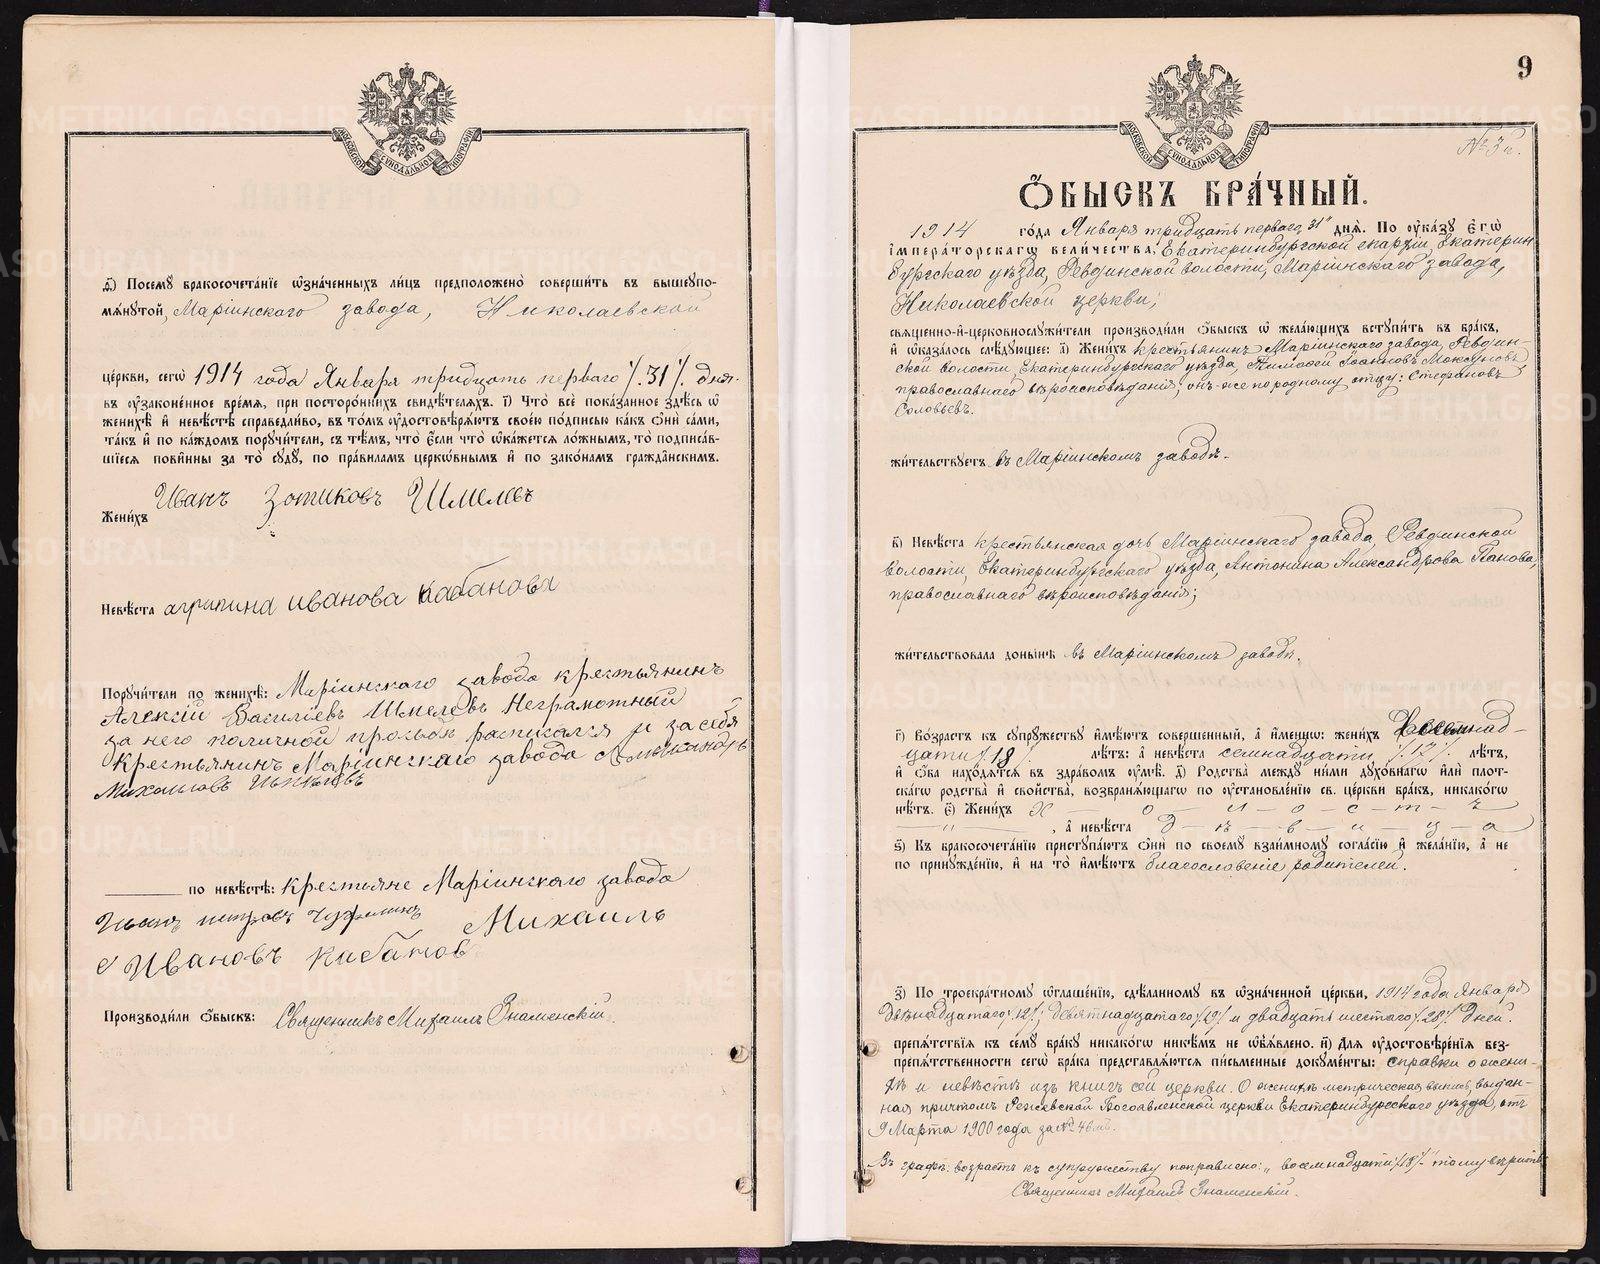 МОСКОВСКОЙ СѴНОДАЛЬНОЙ ТИПОГРАФІИ
ѳ҃) Посемꙋ бракосочета́нїе ѡ҆зна́ченныхъ ли́цъ предположено̀ соверши́ть въ вышеꙋпо-
мѧ́нꙋтой, Маріинскаго завода, Николаевской
це́ркви, сегѡ̀ 1914 года Января тридцать перваго /.31/. дня.
въ ᲂу҆зако́ненное вре́мѧ, при посторо́ннихъ свидѣ́телѧхъ. і҃) Что̀ всѐ пока́занное здѣ́сь ѡ҆
женихѣ̀ и҆ невѣ́стѣ справедли́во, въ то́мъ ᲂу҆достовѣрѧ́ютъ свое́ю по́дписью ка́къ ѻ҆нѝ са́ми,
та́къ и҆ по ка́ждомъ порꙋчи́тели, съ тѣ́мъ, что̀ є҆́сли что̀ ѡ҆ка́жетсѧ ло́жнымъ, то̀ подписа́в-
шїесѧ пови́нны за то̀ сꙋдꙋ̀, по пра́виламъ церко́внымъ и҆ по зако́намъ гражда́нскимъ.
Жени́хъ Иванъ Зотиковъ Шмелевъ
Невѣ́ста агрипина иванова кабанова
Порꙋчи́тели по женихѣ̀: Маріинскаго завода крестьянинъ
Алексій Василіевъ Шмелевъ Неграмотный
за него по личной просьбѣ расписался и за себя
Крестьянинъ Маріинскаго завода Александръ
Михаиловъ
по невѣ́стѣ: Крестьяне Маріинскаго завода
Иванъ петровъ Михаилъ
Ивановъ кабановъ
Производи́ли ѻ҆́быскъ: Священникъ Михаилъ Знаменскій.
9
МОСКОВСКОЙ СѴНОДАЛЬНОЙ ТИПОГРАФІИ
Ѻ҆́БЫСКЪ БРА́ЧНЫЙ.
1914 го́да Января тридцать перваго "31" днѧ̀. По ᲂу҆ка́зꙋ Є҆гѡ̀
І҆мпера́торскагѡ вели́чества, Екатеринбургской епархіи, Екатерин-
бургскаго уѣзда, Ревдинской волости, Маріинскаго завода,
Николаевской церкви,
свѧще́нно-и҆-церковнослꙋжи́тели производи́ли ѻ҆́быскъ ѡ҆ жела́ющихъ встꙋпи́ть въ бра́къ,
и҆ ѡ҆каза́лось слѣ́дꙋющее: а҃) Жени́хъ крестьянинъ Маріинскаго завода, Ревдин-
ской волости, Екатеринбургскаго уѣзда, Тимофей Іоанновъ
православнаго вѣроисповѣданія; онъ-же по родному отцу: Стефановъ
Соловьевъ.
жи́тельствꙋетъ въ Маріинскомъ заводѣ.
в҃) Невѣ́ста крестьянская дочь Маріинскаго завода Ревдинской
волости, Екатеринбургскаго уѣзда, Антонина Александрова Панова,
православнаго вѣроисповѣданія;
жи́тельствовала доны́нѣ въ Маріинскомъ заводѣ.
г҃) Во́зрастъ къ сꙋпрꙋ́жествꙋ и҆мѣ́ютъ соверше́нный, а҆ и҆́менно: жени́хъ Восемнад-
цати /.18/. лѣ́тъ: а҆ невѣ́ста семнадцати /.17/. лѣ́тъ,
и҆ ѻ҆́ба нахо́дѧтсѧ въ здра́вомъ ᲂу҆мѣ̀. д҃) Родства̀ междꙋ ни́ми дꙋхо́внагѡ и҆лѝ пло́т-
скагѡ родства̀ и҆ сво́йства, возбранѧ́ющагѡ по ᲂу҆становле́нїю св. це́ркви бра́къ, никако́гѡ
нѣ́тъ. є҃) Жени́хъ х — о — л — о — с — т — ъ
— " —, а҆ невѣ́ста д — ѣ — в — и — ц — а
ѕ҃) Къ бракосочета́нїю пристꙋпа́ютъ ѻ҆нѝ по своемꙋ̀ взаи́мномꙋ согла́сїю и҆ жела́нїю, а҆ не
по принꙋжде́нїю, и҆ на то̀ и҆мѣ́ютъ благословеніе родителей.
з҃) По троекра́тномꙋ ѡ҆глаше́нїю, сдѣ́ланномꙋ въ ѡ҆зна́ченной це́ркви, 1914 года Января
Двѣнадцатаго /.12/.; девятнадцатаго /.19/. и двадцать шестаго /.26/. дней.
препѧ́тствїѧ къ семꙋ̀ бра́кꙋ никако́гѡ никѣ́мъ не ѡ҆б̾ѧ́влено. и҃) Длѧ ᲂу҆достовѣре́нїѧ без-
препѧ́тственности сегѡ̀ бра́ка представлѧ́ютсѧ пи́сьменные докꙋме́нты: справки о жени-
хѣ и невѣстѣ изъ книгъ сей церкви. О женихѣ метрическая выпись, выдан-
ная причтомъ Режевской Богоявленской церкви Екатеринбургскаго уѣзда, отъ
9 Марта 1900 года за №46
Въ графѣ: возрастъ къ супружеству поправлено: „восемнадцати /.18/." тому вѣрить
Священникъ Михаилъ Знаменскій.
METRIKI.GASO-URAL.RU